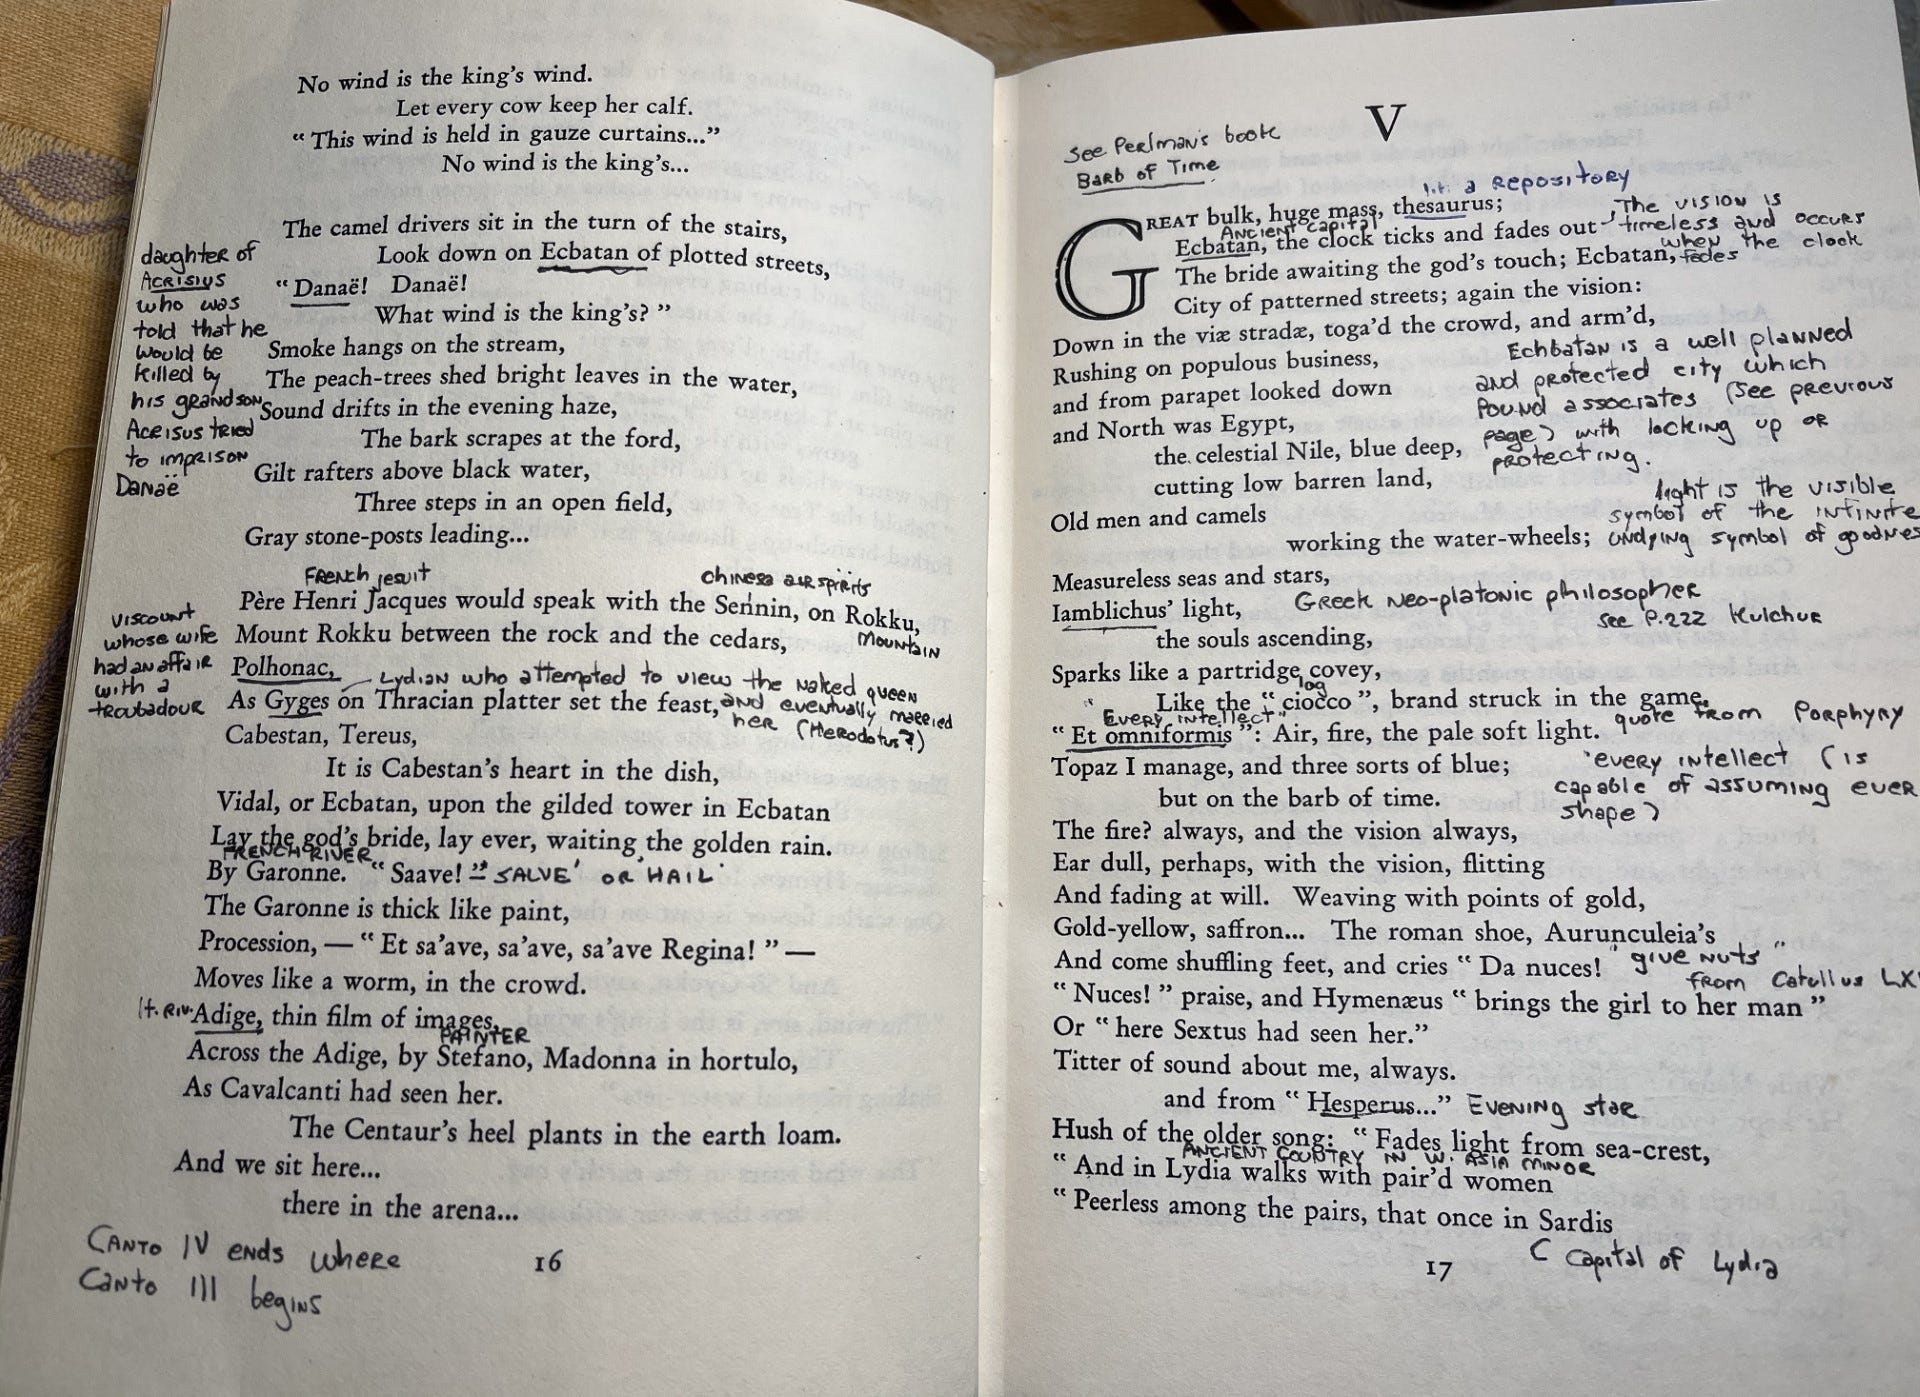 No wind is the king's wind.
Let every cow keep her calf.
“This wind is held in gauze curtains...”
No wind is the king's...
The camel drivers sit in the turn of the stairs,
Look down on Ecbatan of plotted streets,
“Danaë! Danaë!
What wind is the king's?”
Smoke hangs on the stream,
The peach-trees shed bright leaves in the water,
Sound drifts in the evening haze,
The bark scrapes at the ford,
Gilt rafters above black water,
Three steps in an open field,
Gray stone-posts leading...
daughter of
Acrisius
who was
told that he
would be
killed by
his grandson
Acrisus tried
to imprison
Danaë
French jesuit
chinese air spirits
Père Henri Jacques would speak with the Sennin, on Rokku,
Mount Rokku between the rock and the cedars,
mountain
Polhonac,
viscount
whose wife
had an affair
with a
troubadour
Lydian who attempted to view the naked queen
As Gyges on Thracian platter set the feast,
and eventually married
her (Herodotus?)
Cabestan, Tereus,
It is Cabestan's heart in the dish,
Vidal, or Ecbatan, upon the gilded tower in Ecbatan
Lay the god's bride, lay ever, waiting the golden rain.
FRENCH RIVER
By Garonne. “Saave!”
"SALVE' OR HAIL
The Garonne is thick like paint,
Procession, — “Et sa'ave, sa'ave, sa'ave Regina!” —
Moves like a worm, in the crowd.
It. Riv.
Adige, thin film of images,
PAINTER
Across the Adige, by Stefano, Madonna in hortulo,
As Cavalcanti had seen her.
The Centaur's heel plants in the earth loam.
And we sit here...
there in the arena...
Canto IV ends where
Canto III begins
16
V
see Perlman's book
Barb of Time
lit. a repository
GREAT bulk, huge mass, thesaurus;
Ancient capital
Ecbatan, the clock ticks and fades out
The vision is
timeless and occurs
when the clock
fades
The bride awaiting the god's touch; Ecbatan,
City of patterned streets; again the vision:
Down in the viæ stradæ, toga'd the crowd, and arm'd,
Rushing on populous business,
and from parapet looked down
and North was Egypt,
the celestial Nile, blue deep,
cutting low barren land,
Echbatan is a well planned
and protected city which
Pound associates (see previous
page) with locking up or
protecting.
Old men and camels
working the water-wheels;
light is the visible
symbol of the infinite
undying symbol of goodnes
Measureless seas and stars,
Iamblichus' light,
Greek neo-platonic philosopher
see P.222 Kulchur
the souls ascending,
Sparks like a partridge covey,
log
Like the “ciocco”, brand struck in the game.
"Every intellect"
“Et omniformis”: Air, fire, the pale soft light.
quote from Porphyry
Topaz I manage, and three sorts of blue;
but on the barb of time.
'every intellect (is
capable of assuming ever
shape)
The fire? always, and the vision always,
Ear dull, perhaps, with the vision, flitting
And fading at will. Weaving with points of gold,
Gold-yellow, saffron... The roman shoe, Aurunculeia's
And come shuffling feet, and cries “Da nuces!
"give nuts"
from Catullus LX
“Nuces!” praise, and Hymenæus “brings the girl to her man”
Or “here Sextus had seen her.”
Titter of sound about me, always.
and from “Hesperus...”
Evening star
Hush of the older song: “Fades light from sea-crest,
ANCIENT COUNTRY IN W. ASIA MINOR
“And in Lydia walks with pair'd women
“Peerless among the pairs, that once in Sardis
Capital of Lydia
17